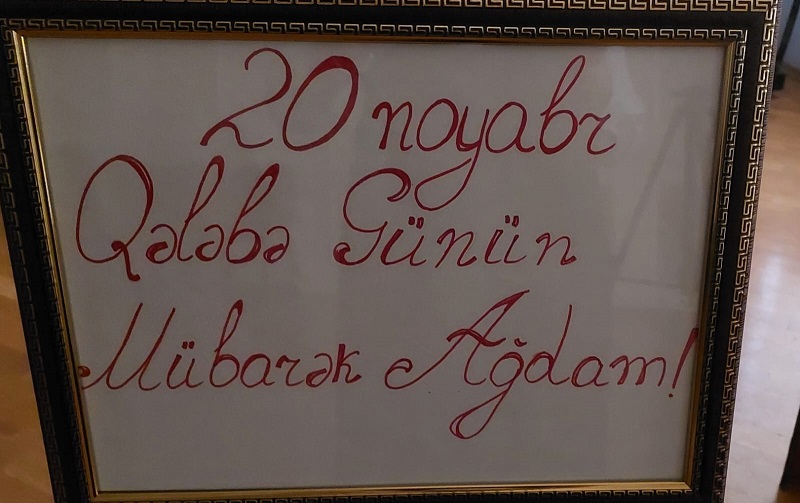 20 noyabr
Qələbə Günün
Mübarək Ağdam!